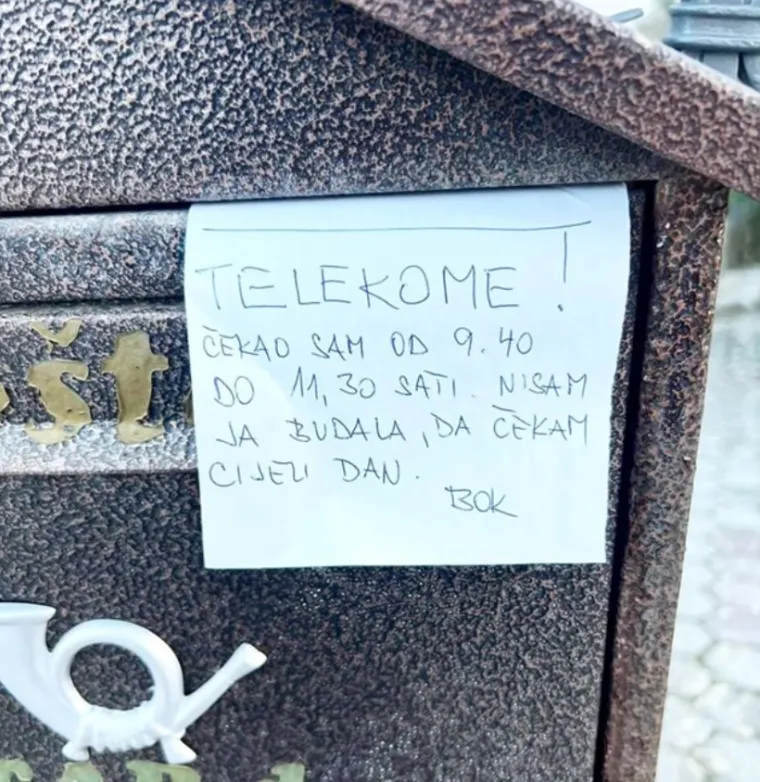 TELEKOME!
ČEKAO SAM OD 9.40
DO 11,30 SATI. NISAM
JA BUDALA, DA ČEKAM
CIJELI DAN.
BOK
št